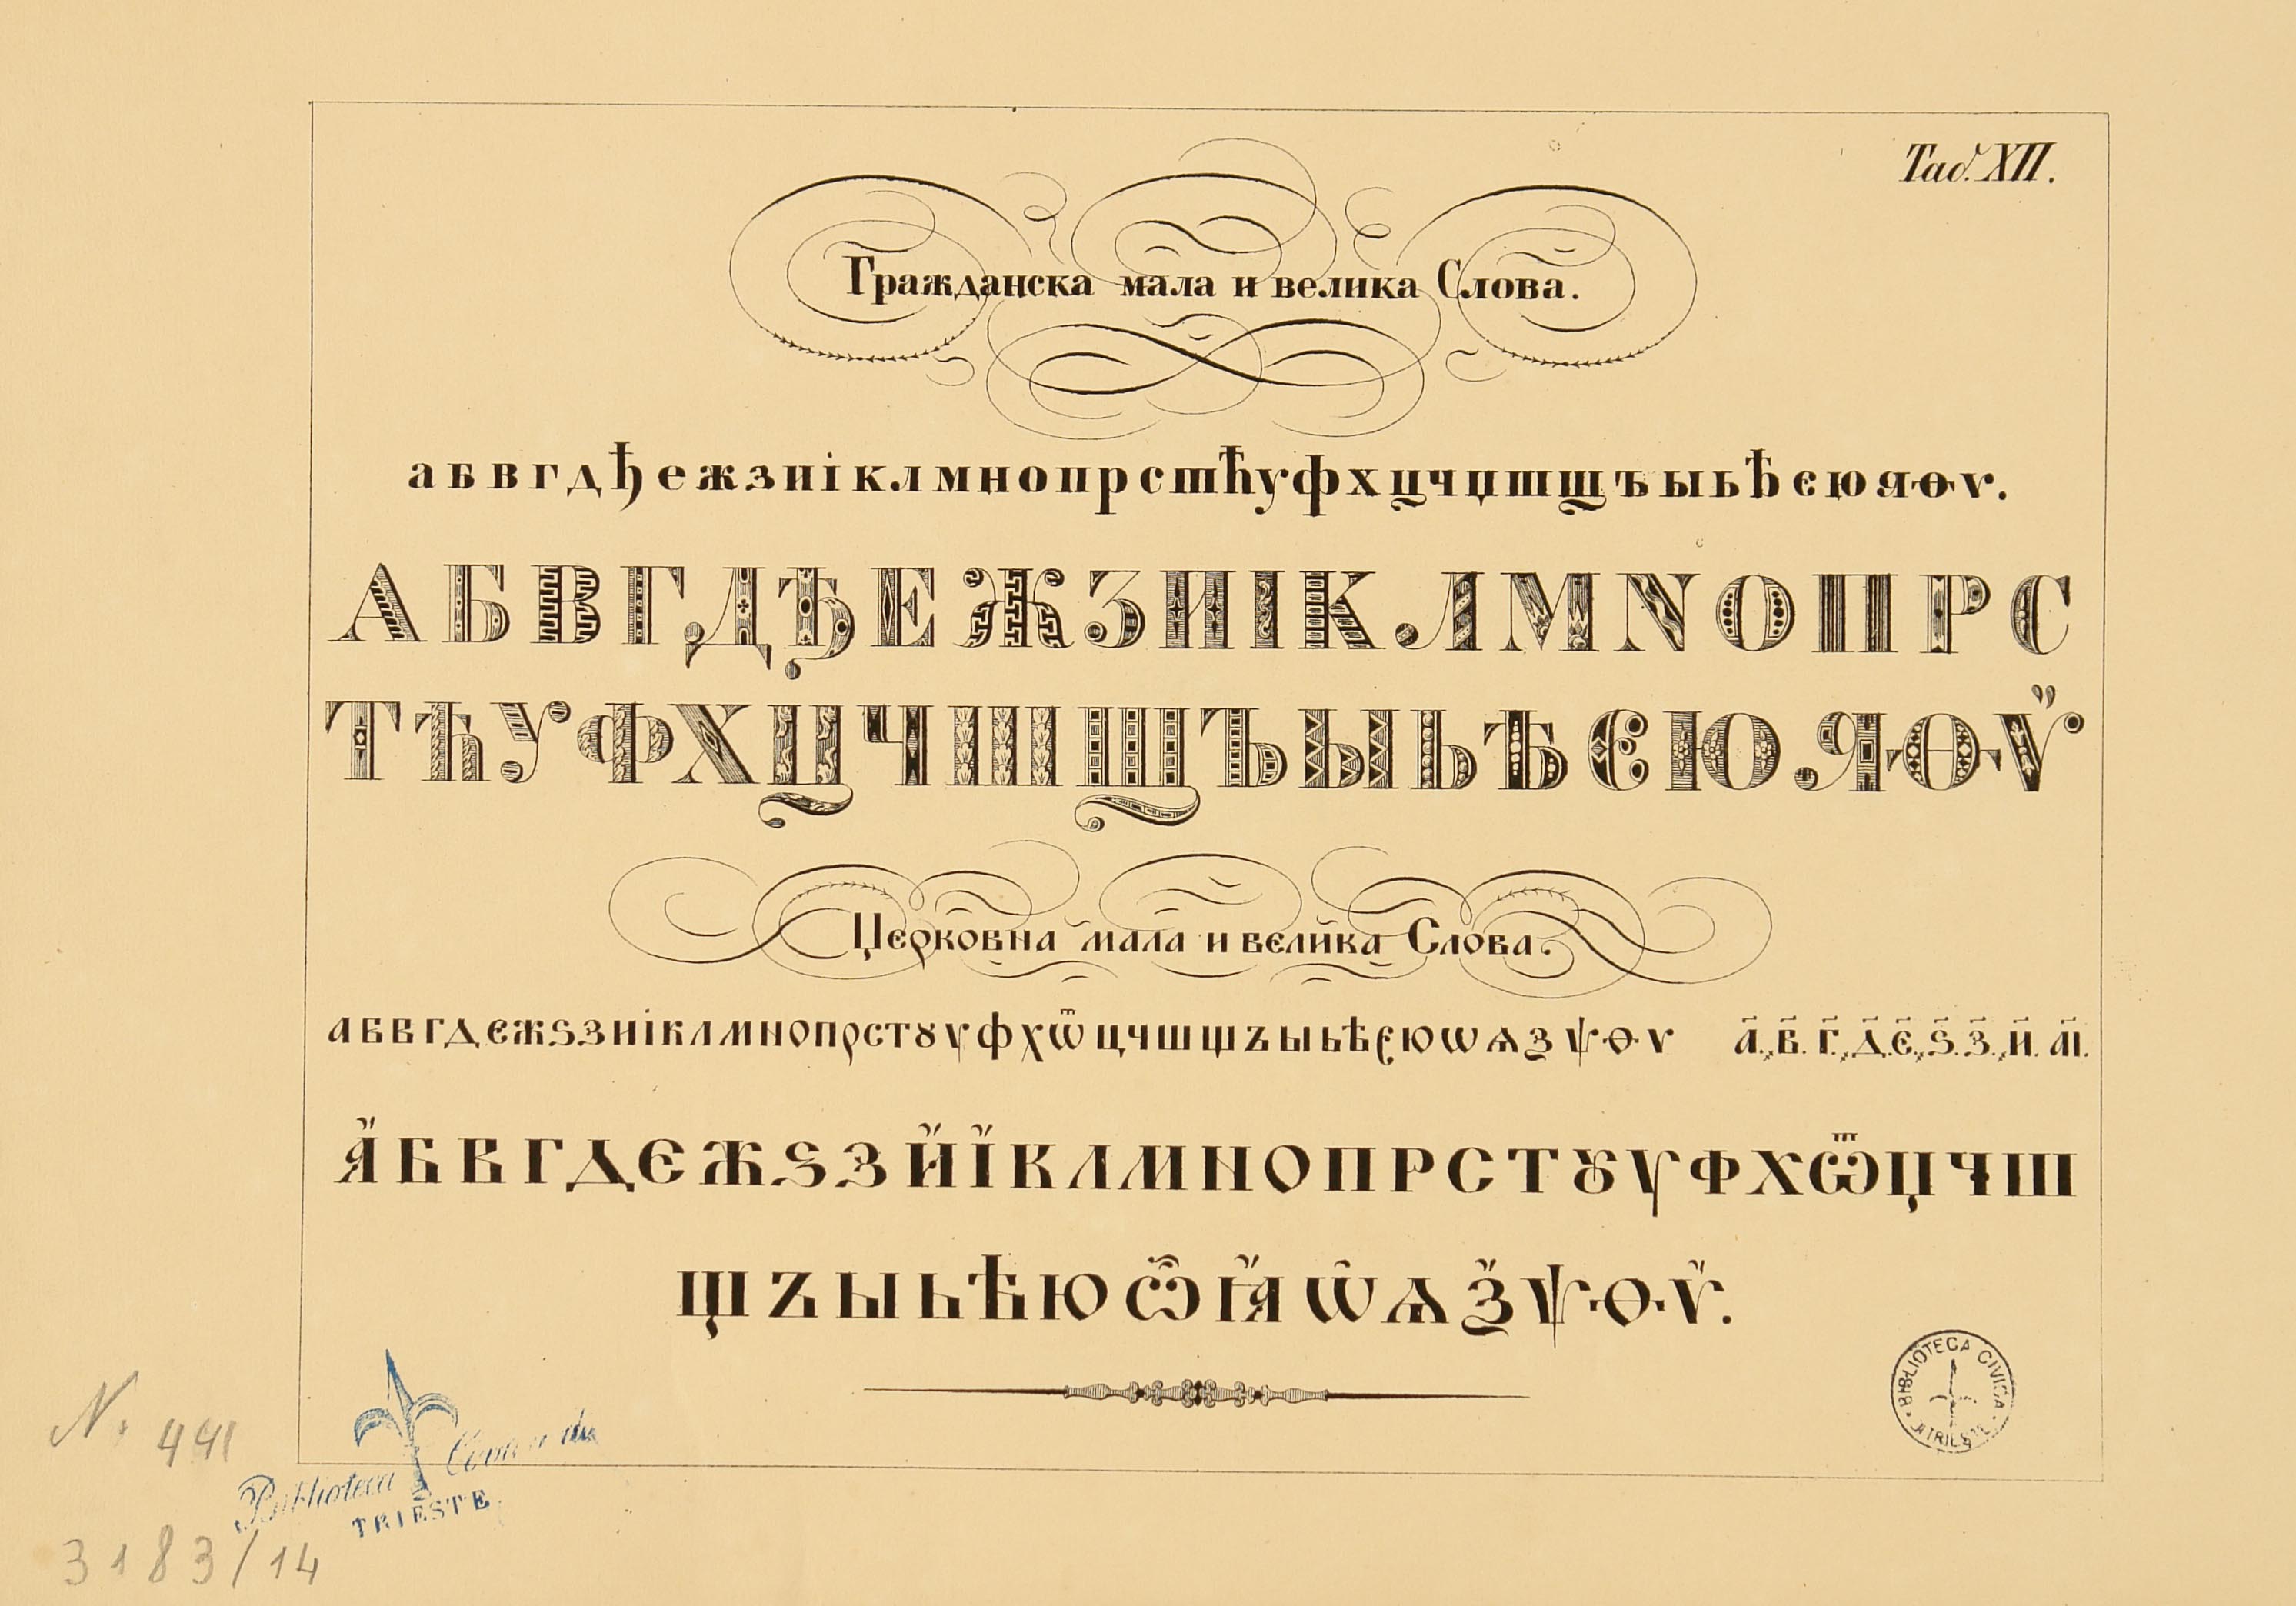 Таб. XII.
Гражданска мала и велика Слова.
а б в г д ђ е ж з и і к л м н о п р с т ћ у ф х ц ч џ ш щ ъ ы ь ѣ є ю я ѳ ѵ.
А Б В Г Д Ђ Е Ж З И І К Л М N О П Р С
Т Ћ У Ф Х Ц Ч Ш Щ Ъ Ы Ь Ѣ Є Ю Я Ѳ Ѵ̈
Церковна мала и велика Слова.
а б в г д є ж ѕ з и і к л м н о п р с т ꙋ ѵ ф х ѿ ц ч ш щ ъ ы ь ѣ є ю ѡ ѧ ѯ ѱ ѳ ѵ а҃., в҃. г҃., д҃. є҃., ѕ҃. з҃., и҃. аі҃.
Я҆́ Б В Г Д Є Ж Ѕ З И҆́ І҆́ К Л М Н О П Р С Т Ꙋ Ѵ Ф Х Ѿ Ц Ч Ш
Щ Ъ Ы Ь Ѣ Ю Ѽ Ꙗ҆́ Ѡ̑ Ѧ Ѯ Ѱ Ѳ Ѵ҆́.
BIBLIOTECA CIVICA
TRIESTE
N. 441
Biblioteca Civica di
TRIESTE
3183/14